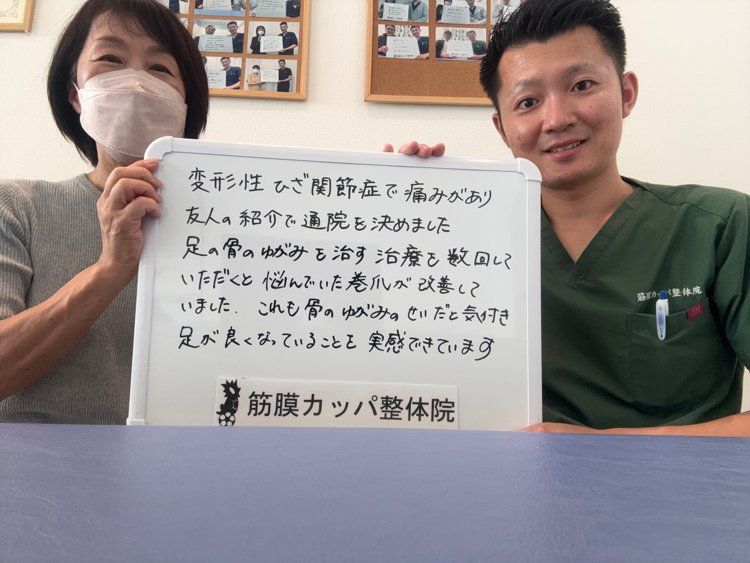 変形性 ひざ関節症で痛みがあり
友人の紹介で通院を決めました
足の骨のゆがみを治す治療を数回して
いただくと悩んでいた巻爪が改善して
いました. これも骨のゆがみのせいだと気付き
足が良くなっていることを実感できています
筋膜カッパ整体院
筋膜カッパ整体院